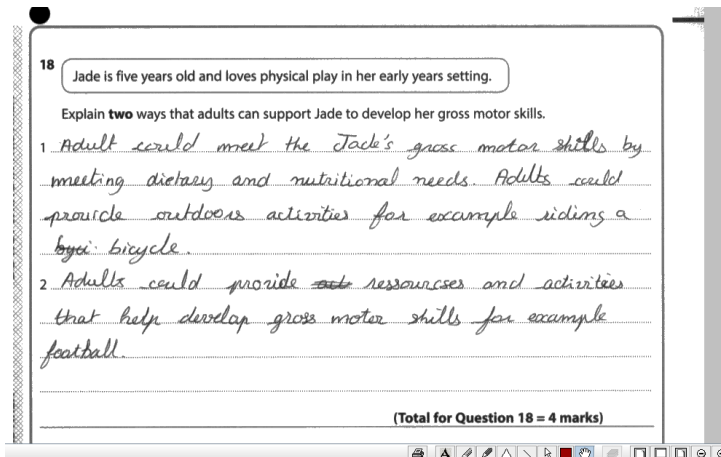 18
Jade is five years old and loves physical play in her early years setting.
Explain two ways that adults can support Jade to develop her gross motor skills.
1 Adult could meet the Jade's gross motor skills by
meeting dietary and nutritional needs. Adults could
provide outdoors activities for example riding a
bicycle.
2 Adults could provide ressourcses and activities
that help develop gross motor skills for example
football.
(Total for Question 18 = 4 marks)